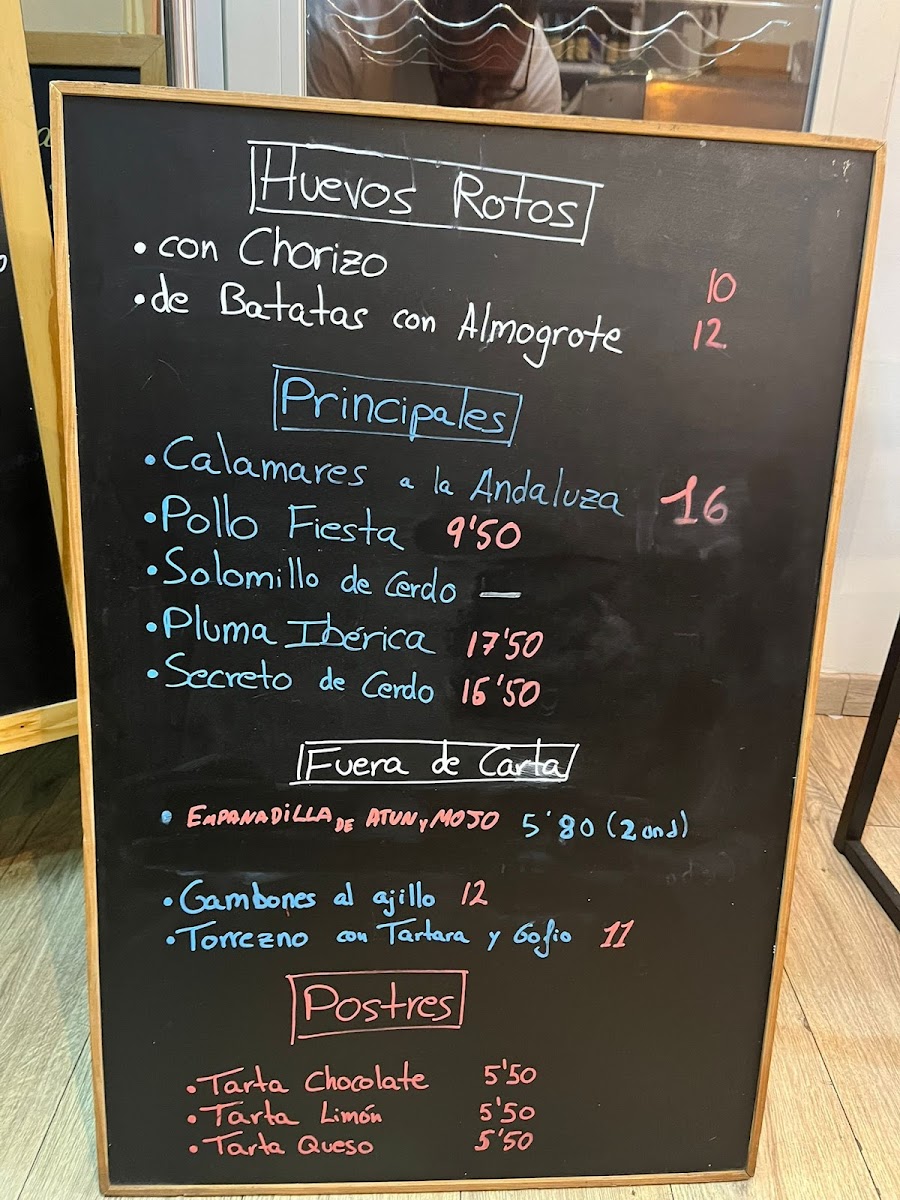 Huevos Rotos
• con Chorizo 10
• de Batatas con Almogrote 12
Principales
• Calamares a la Andaluza 16
• Pollo Fiesta 9'50
• Solomillo de Cerdo —
• Pluma Ibérica 17'50
• Secreto de Cerdo 16'50
Fuera de Carta
• EMPANADILLA DE ATUN y MOJO 5'80 (2 und)
• Gambones al ajillo 12
• Torrezno con Tartara y Gofio 11
Postres
• Tarta Chocolate 5'50
• Tarta Limón 5'50
• Tarta Queso 5'50